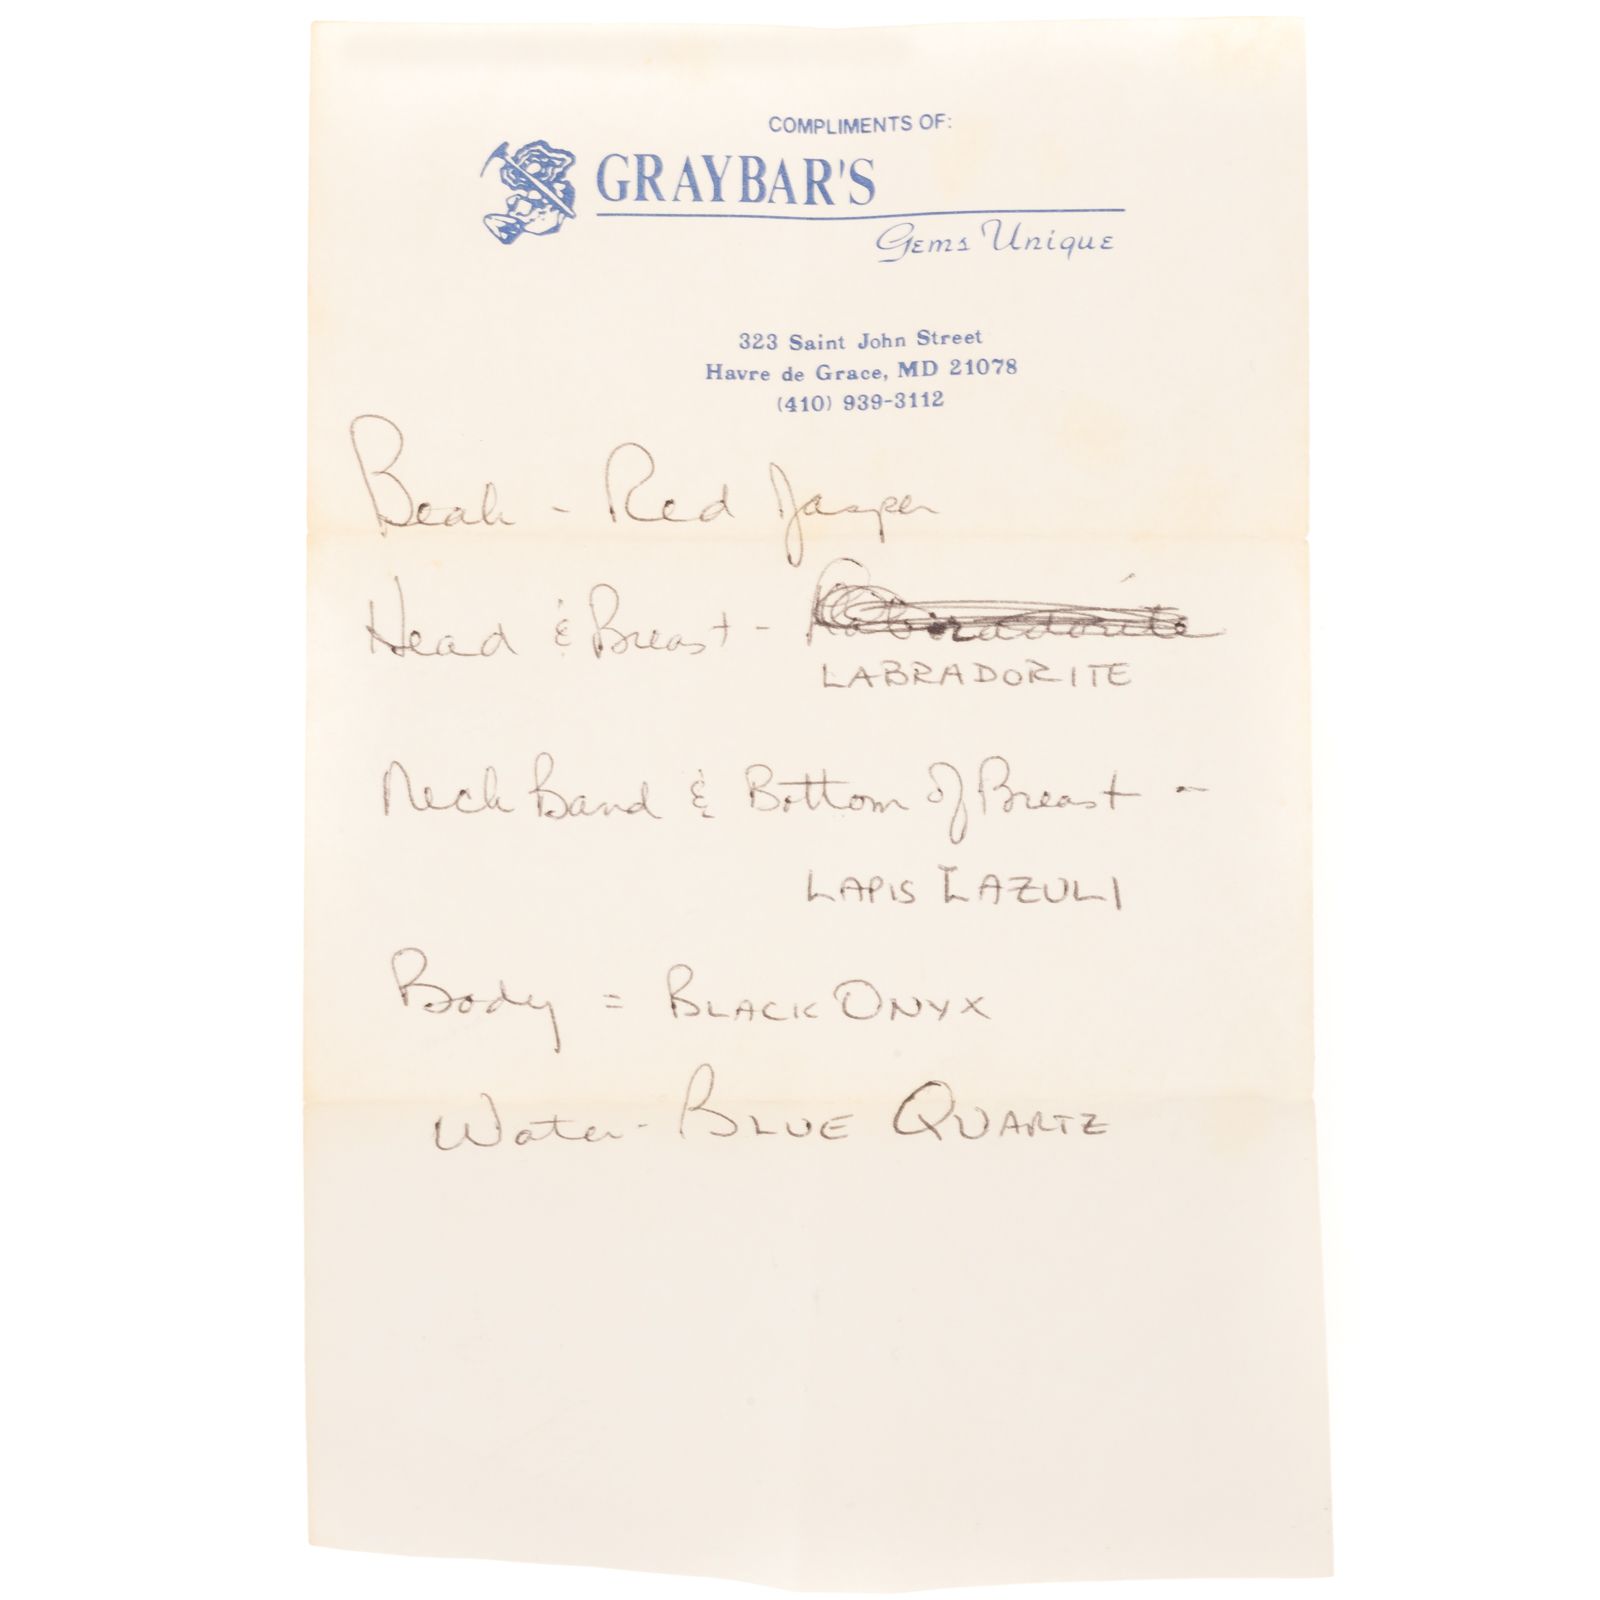 COMPLIMENTS OF:
GRAYBAR'S
Gems Unique
323 Saint John Street
Havre de Grace, MD 21078
(410) 939-3112
Beak - Red Jasper
Head & Breast - Labradorite
LABRADORITE
Neck Band & Bottom of Breast -
LAPIS LAZULI
Body = BLACK ONYX
Water - BLUE QUARTZ